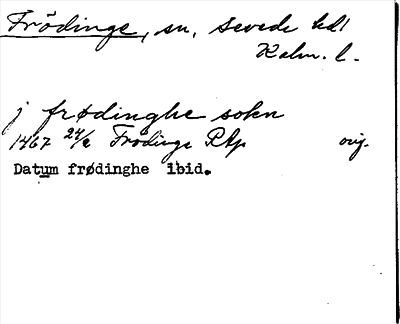 Frödinge, sn, Sevede hd
Kalm. l.
j frødinghe sokn
1467 24/2 Frödinge RAp orig.
Datum frødinghe ibid.